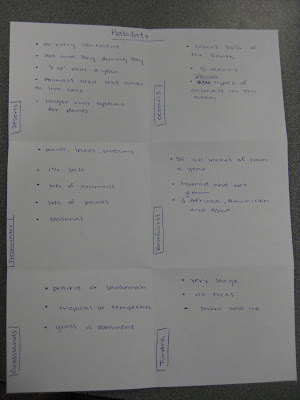 Habitats
Deserts
• on every continent
• Hot and Dry during Day
10" rain a year
• Animals
to live here
• Longer root systems
for plants
Oceans
• covers 70% of
the Earth
• 5 oceans
types of
animals in the
ocean
Freshwater
• ponds, lakes, streams
• 1% salt
• lots of animals
• lots of plants
• seasonal
Rainforest
inches of rain
a year
• Humid and wet
• 3 African, American
and Asian
Grasslands
• prairie or savannah
• tropical or temperate
• grass is dominent
Tundra
• very large
• no trees
• snow and ice